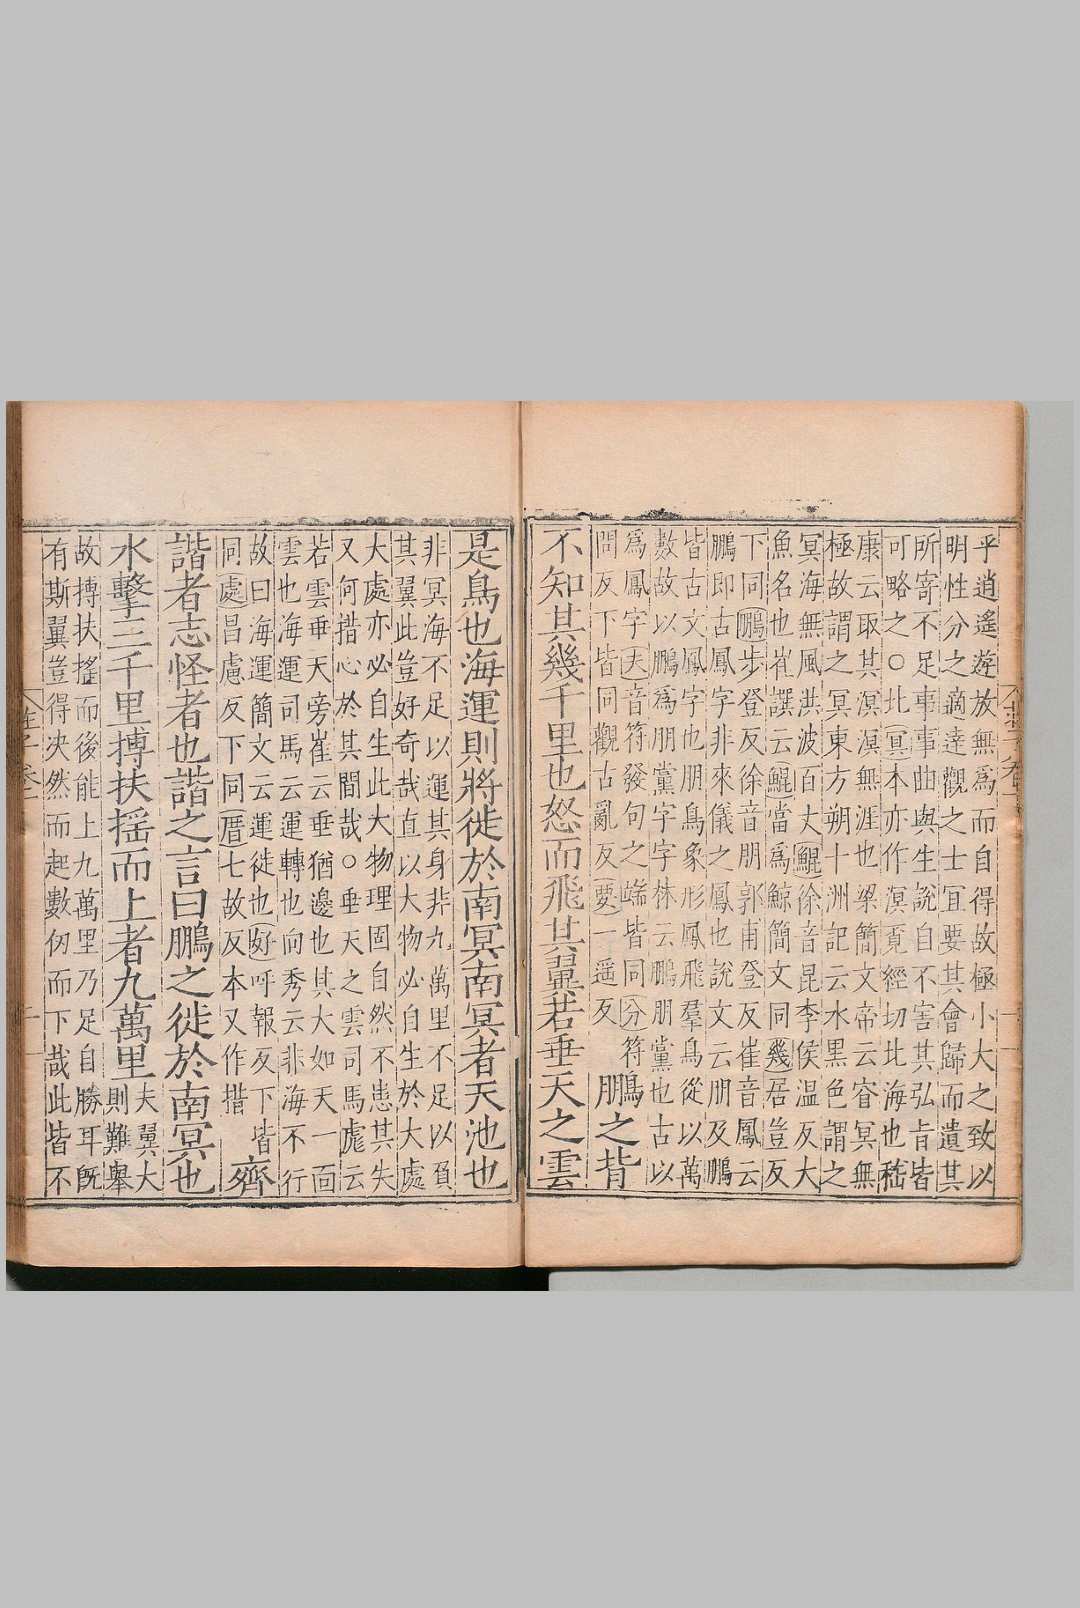 乎逍遙遊放無爲而自得故極小大之致以
明性分之適達觀之士宜要其會歸而遺其
所寄不足事事曲與生說自不害其弘旨皆
可略之○北冥本亦作溟覓經切北海也嵇
康云取其溟漠無涯也梁簡文帝云窅冥無
極故謂之冥東方朔十洲記云水黑色謂之
冥海無風洪波百丈鯤徐音昆李侯溫反大
魚名也崔譔云鯤當爲鯨簡文同幾居豈反
下同鵬步登反徐音朋郭甫登反崔音鳳云
鵬即古鳳字非來儀之鳳也說文云朋及鵬
皆古文鳳字也朋鳥象形鳳飛羣鳥從以萬
數故以鵬爲朋黨字字林云鵬朋黨也古以
爲鳳字夫音符發句之端皆同分符
問反下皆同觀古亂反要一遥反
鵬之背
不知其幾千里也怒而飛其翼若垂天之雲
是鳥也海運則將徙於南冥南冥者天池也
非冥海不足以運其身非九萬里不足以負
其翼此豈好奇哉直以大物必自生於大處
大處亦必自生此大物理固自然不患其失
又何措心於其間哉○垂天之雲司馬彪云
若雲垂天旁崔云垂猶邊也其大如天一面
雲也海運司馬云運轉也向秀云非海不行
故曰海運簡文云運徙也好呼報反下皆
同處昌慮反下同厝七故反本又作措
齊
諧者志怪者也諧之言曰鵬之徙於南冥也
水擊三千里摶扶揺而上者九萬里
夫翼大
則難舉
故摶扶搖而後能上九萬里乃足自勝耳旣
有斯翼豈得決然而起數仞而下哉此皆不
莊子卷一